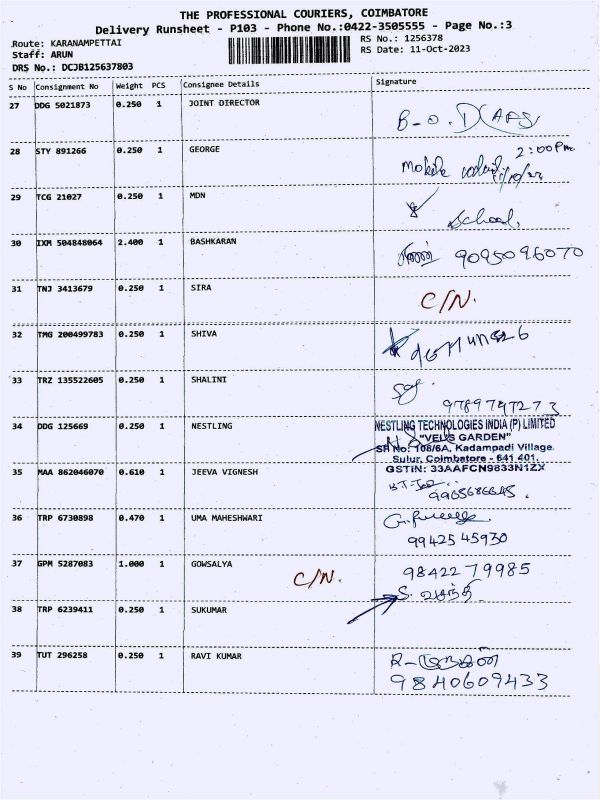 THE PROFESSIONAL COURIERS, COIMBATORE
Delivery Runsheet - P103 - Phone No.:0422-3505555 - Page No.:3
Route: KARANAMPETTAI RS No.: 1256378
Staff: ARUN RS Date: 11-Oct-2023
DRS No.: DCJB125637803
S No Consignment No Weight PCS Consignee Details Signature
27 DDG 5021873 0.250 1 JOINT DIRECTOR
B-O.D(AFS)
28 STY 891266 0.250 1 GEORGE 2:00 Pm
29 TCG 21027 0.250 1 MDN
School
30 IXM 504848064 2.400 1 BASHKARAN
9095096070
31 TNJ 3413679 0.250 1 SIRA
C/N.
32 TMG 200499783 0.250 1 SHIVA
33 TRZ 135522605 0.250 1 SHALINI
9789797273
34 DDG 125669 0.250 1 NESTLING
NESTLING TECHNOLOGIES INDIA (P) LIMITED
"VELS GARDEN"
SF No: 108/6A, Kadampadi Village
Sulur, Coimbatore - 641 401.
GSTIN: 33AAFCN9833N1ZX
35 MAA 862046070 0.610 1 JEEVA VIGNESH
36 TRP 6730898 0.470 1 UMA MAHESHWARI
99425 45930
37 GPM 5287083 1.000 1 GOWSALYA
C/N. 98422 79985
S. வசந்தி
38 TRP 6239411 0.250 1 SUKUMAR
39 TUT 296258 0.250 1 RAVI KUMAR
9840609433